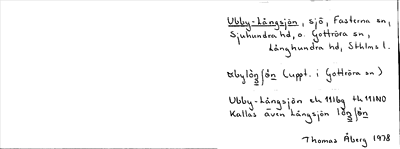 Ubby-Långsjön, sjö, Fasterna sn,
Sjuhundra hd, o. Gottröra sn,
Långhundra hd, Sthlms l.
(uppt. i Gottröra sn)
Ubby-Långsjön ek 11I6g tk 11IN0
Kallas även Långsjön
Thomas Åberg 1978